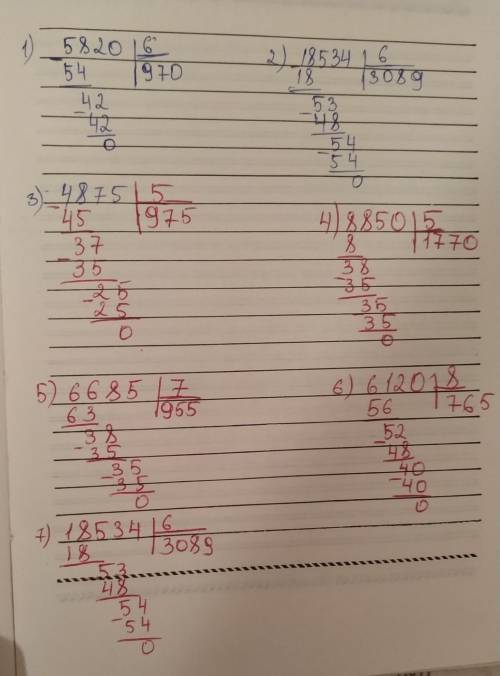 1) 5820 | 6
54 | 970
- 42
42
0
2) 18534 | 6
18 | 3089
- 53
48
- 54
54
0
3) - 4875 | 5
45 | 975
- 37
35
- 25
25
0
4) 8850 | 5
8 | 1770
- 38
35
35
35
0
5) 6685 | 7
63 | 955
- 38
35
- 35
35
0
6) 6120 | 8
56 | 765
- 52
48
- 40
40
0
7) 18534 | 6
18 | 3089
53
48
- 54
54
0